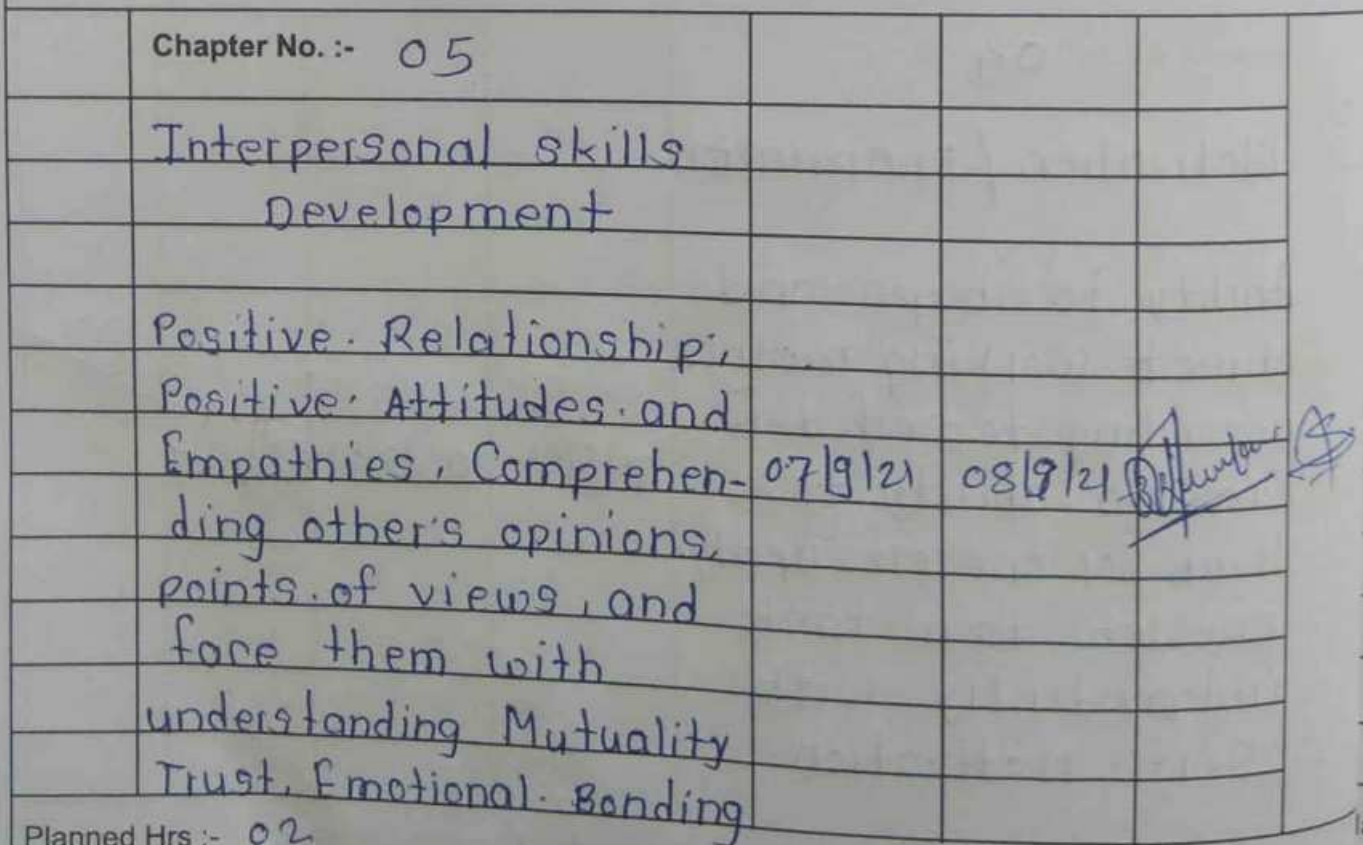 Chapter No. :- 05
Interpersonal skills
Development
Positive. Relationship,
Positive. Attitudes. and
Empathies, Comprehen- 07/9/21 08/9/21
ding other's opinions,
points. of views, and
face them with
understanding Mutuality
Trust, Emotional. Bonding
Planned Hrs :- 02